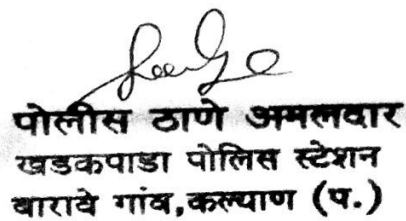 पोलीस ठाणे अमलदार
खडकपाडा पोलिस स्टेशन
बारावे गांव,कल्याण (प.)